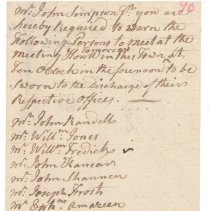 Mr. John Simpson Jr. you are
hereby Required to warn the
following Persons to meet at the
meeting House in this Town at
Ten O'clock in the forenoon to be
Sworn to the Discharge of their
Respective offices —
Mr. John Randell
Mr. Willm. Jones
Mr. Willm. Fredick
Mr. John
Mr. John Shannon
Mr. Joseph Frost
Mr. Amazeen